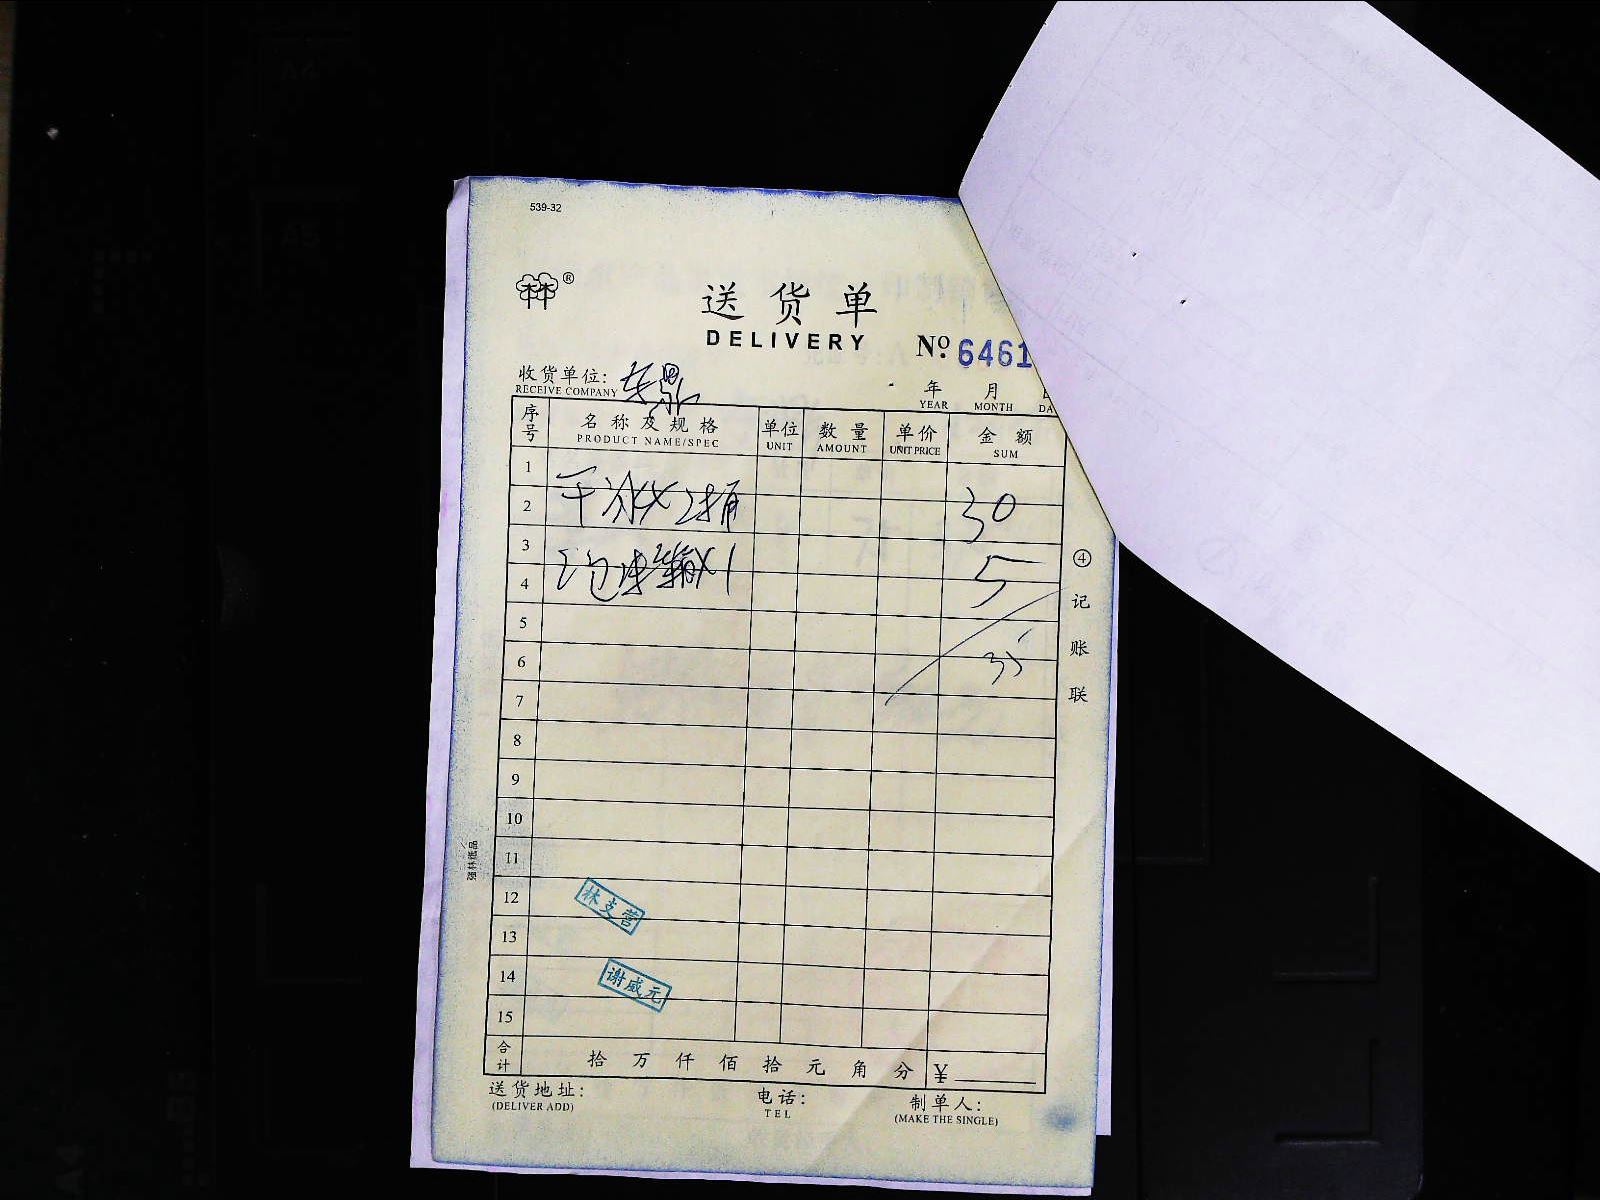 539-32
林®
送货单
DELIVERY
Nº 6461
收货单位:
RECEIVE COMPANY
年 月
YEAR MONTH DA
序号 名称及规格 单位 数量 单价 金额
PRODUCT NAME/SPEC UNIT AMOUNT UNIT PRICE SUM
1
2 干冰×2桶 30
3
4 5
5
6 35
7
8
9
10
11
12 林支营
13
14 谢威元
15
合计 拾 万 仟 佰 拾 元 角 分 ¥
送货地址: 电话: 制单人:
(DELIVER ADD) TEL (MAKE THE SINGLE)
④记账联
强林纸品